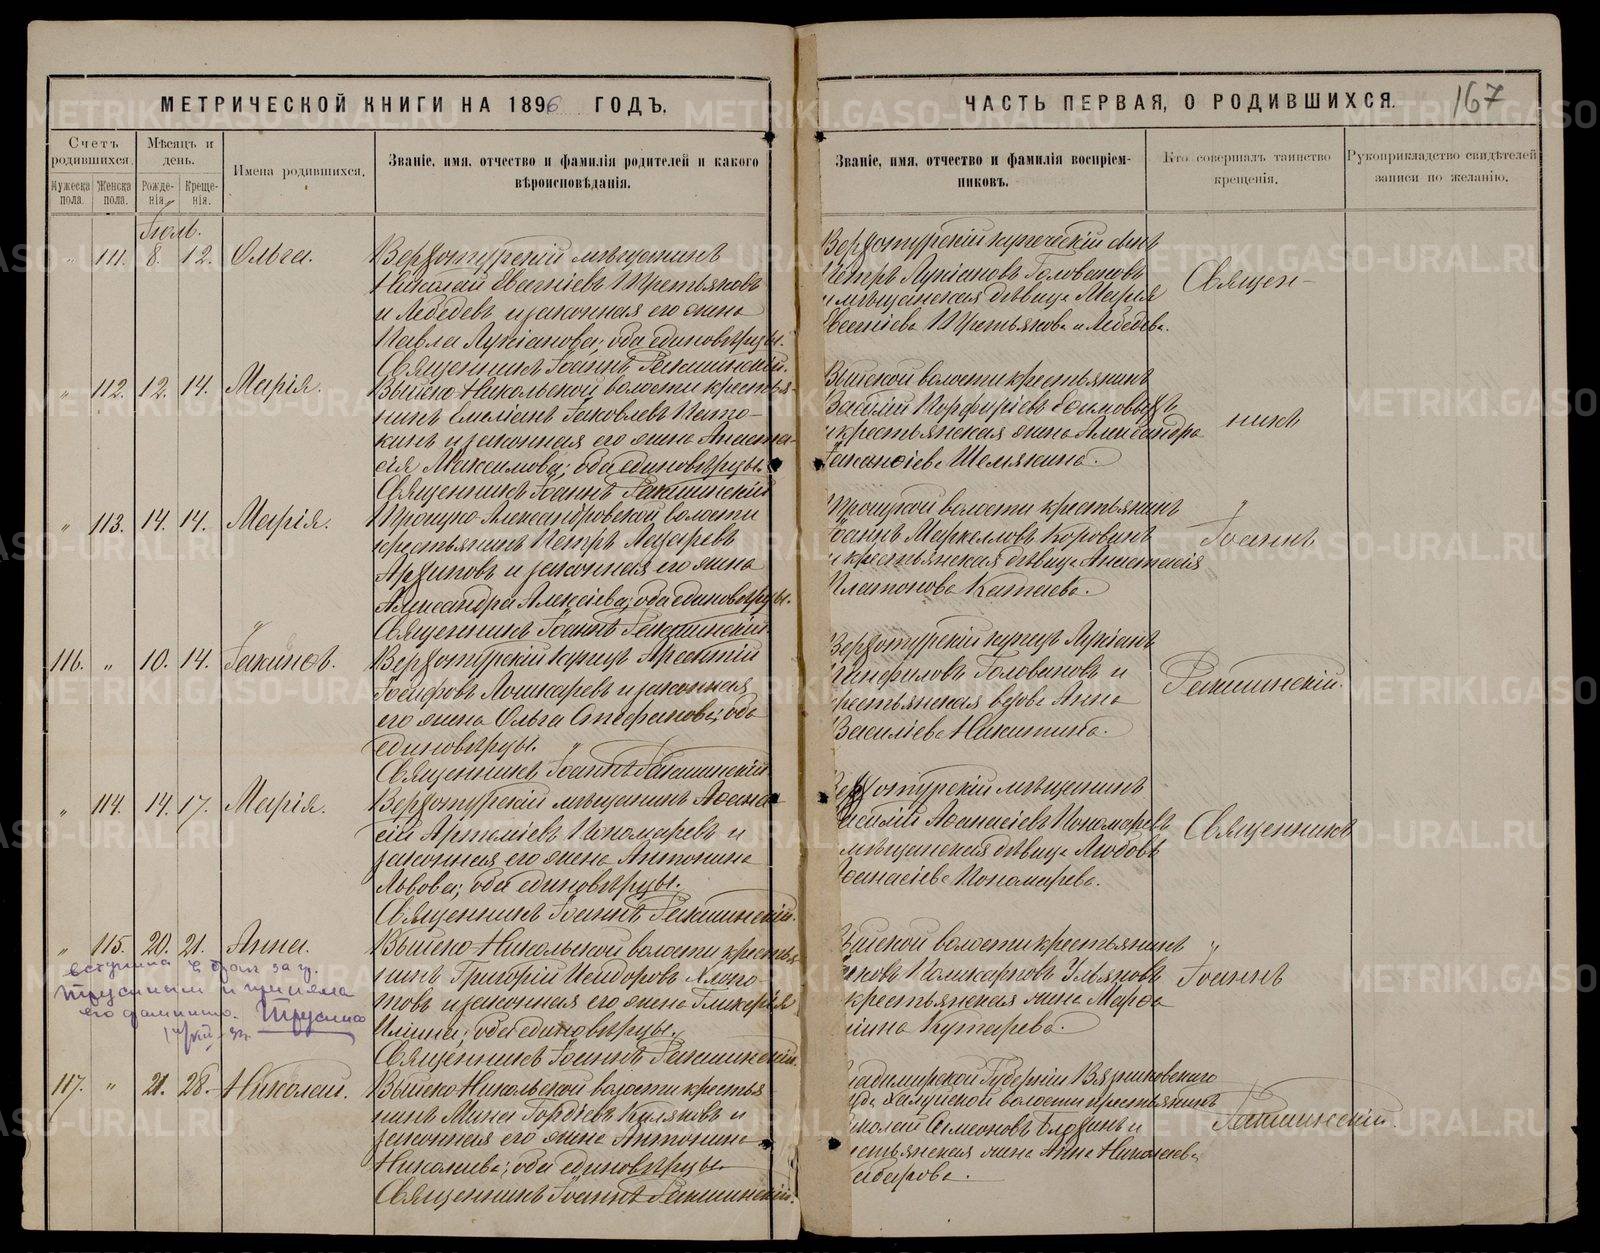 МЕТРИЧЕСКОЙ КНИГИ НА 1896 ГОДЪ.
Счетъ родившихся.
Мужеска пола.
Женска пола.
Мѣсяцъ и день.
Рожденія.
Крещенія.
Имена родившихся.
Званіе, имя, отчество и фамилія родителей и какого
вѣроисповѣданія.
Іюль.
" 111. 8. 12. Ольга. Верхотурскій мѣщанинъ
Николай Евгеніевъ Третьяковъ
и Лебедевъ и законная его жена
Павла Лукіанова; оба единовѣрцы.
Священникъ Іоаннъ
" 112. 12. 14. Марія. Выйско-Никольской волости крестья-
нинъ Емеліанъ Іаковлевъ
и законная его жена Анаста-
сія Максимова; оба единовѣрцы.
Священникъ Іоаннъ
" 113. 14. 14. Марія. Троицко-Александровской волости
крестьянинъ Петръ Лазаревъ
Архиповъ и законная его жена
Александра Алексіева; оба единовѣрцы.
Священникъ Іоаннъ
116. " 10. 14. Іакинѳъ. Верхотурскій купецъ Арсентій
Іосифовъ Лошкаревъ и законная
его жена Ольга Стефанова; оба
единовѣрцы.
Священникъ Іоаннъ
" 114. 14. 17. Марія. Верхотурскій мѣщанинъ Аѳана-
сій Артеміевъ Пономаревъ и
законная его жена Антонина
Львова; оба единовѣрцы.
Священникъ Іоаннъ
" 115. 20. 21. Анна. Выйско-Никольской волости крестья-
нинъ Григорій Исидоровъ Хлопо-
товъ и законная его жена Гликерія
Ильина; оба единовѣрцы.
Священникъ Іоаннъ
вступила в брак за гр.
Трусиным и приняла
его фамилию. Трусина
117. " 21. 28. Николай. Выйско-Никольской волости крестья
нинъ Мина Гордіевъ Куляковъ и
законная его жена Антонина
Николаева; оба единовѣрцы.
Священникъ Іоаннъ
ЧАСТЬ ПЕРВАЯ, О РОДИВШИХСЯ.
167
Званіе, имя, отчество и фамилія воспріем-
никовъ.
Кто совершалъ таинство
крещенія.
Рукоприкладство свидѣтелей
записи по желанію.
Верхотурскій купеческій сынъ
Петръ Лукіановъ Головановъ
и мѣщанская дѣвица Марія
Евгеніева Третьякова и Лебедева.
Священ-
Выйской волости крестьянинъ
Василій Порфиріевъ
и крестьянская жена Александра
Шемякина.
никъ
Троицкой волости крестьянинъ
Іоаннъ Маркелловъ Коровинъ
и крестьянская дѣвица Анастасія
Платонова Катаева.
Іоаннъ
Верхотурскій купецъ Лукіанъ
Панфиловъ Головановъ и
крестьянская вдова Анна
Василіева Никитина.
Верхотурскій мѣщанинъ
Василій Аѳанасіевъ Пономаревъ
мѣщанская дѣвица Любовь
Аѳанасіева Пономарева.
Священникъ
Выйской волости крестьянинъ
Іаковъ Поликарповъ Ульяновъ
крестьянская жена Марѳа
Кутарева.
Іоаннъ
Владимирской Губерніи Вязниковскаго
Холуйской волости крестьянинъ
Николай Симеоновъ Блохинъ и
крестьянская жена Анна Николаева
METRIKI.GASO-URAL.RU